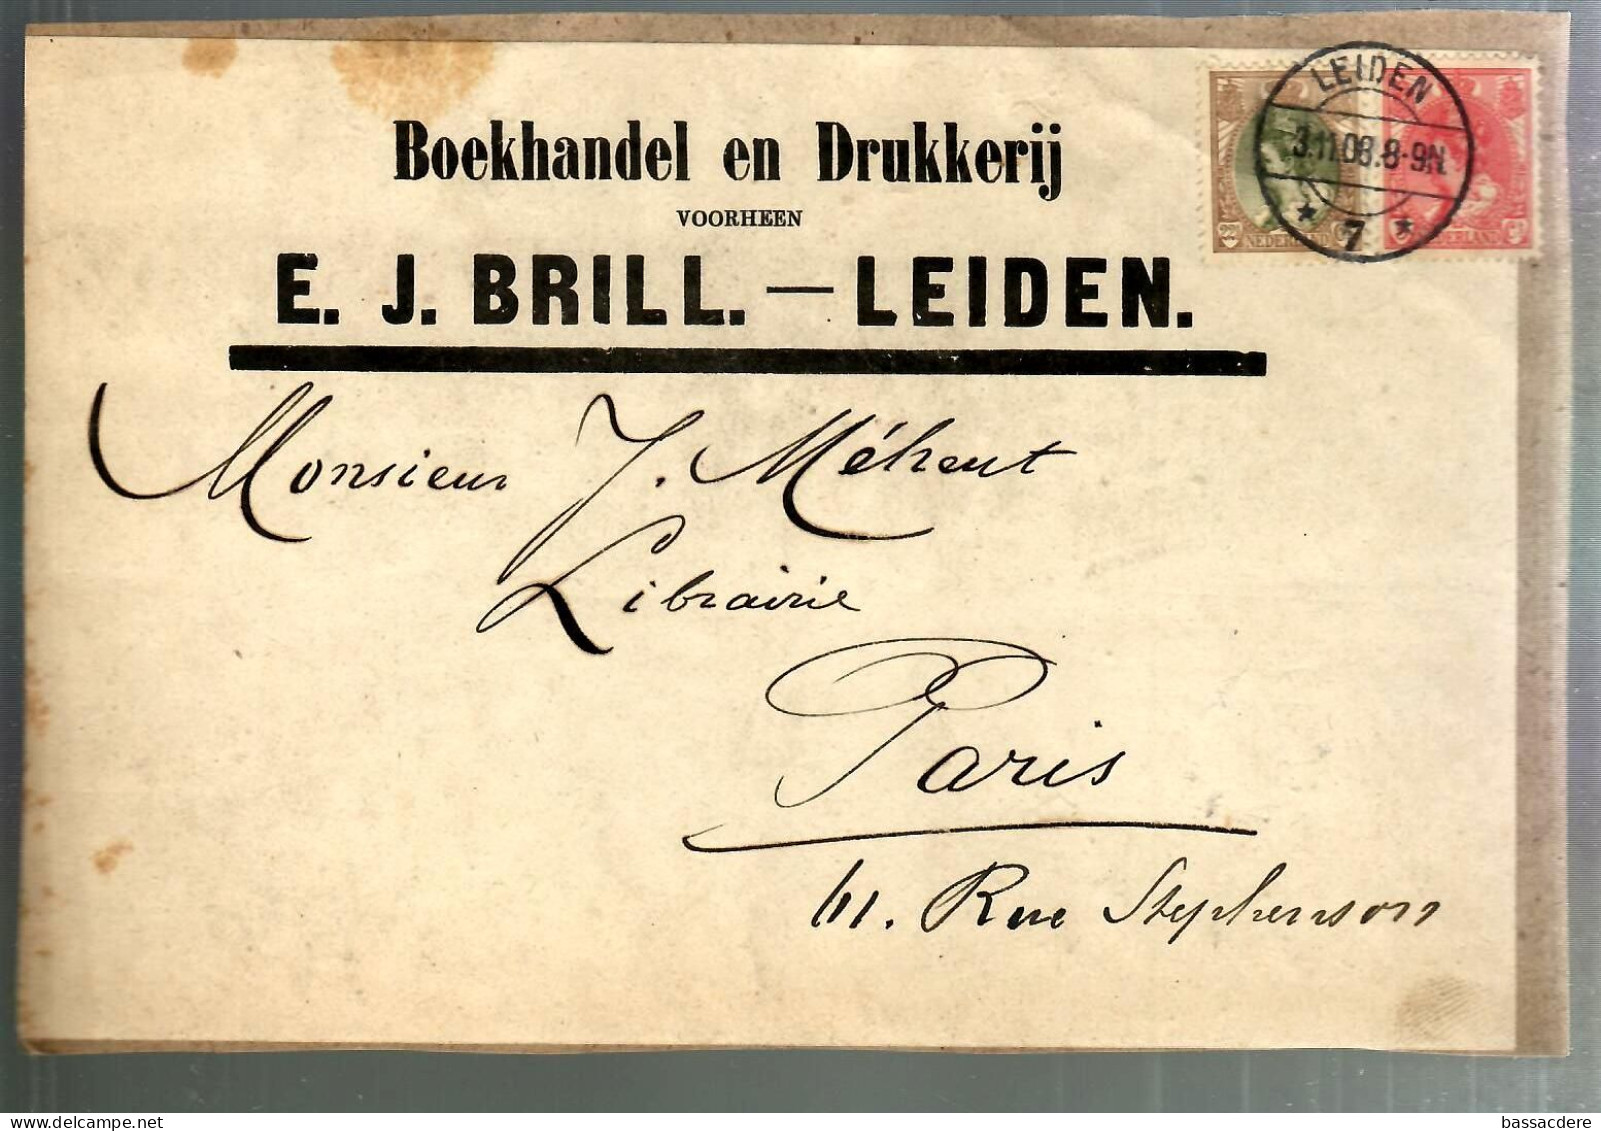 Boekhandel en Drukkerij
VOORHEEN
E. J. BRILL. — LEIDEN.
LEIDEN
3.11.08.8-9N.
* 7 *
NEDERLAND
NEDERLAND
Monsieur J. Méheut
Librairie
Paris
Rue Stephenson
bassacdere